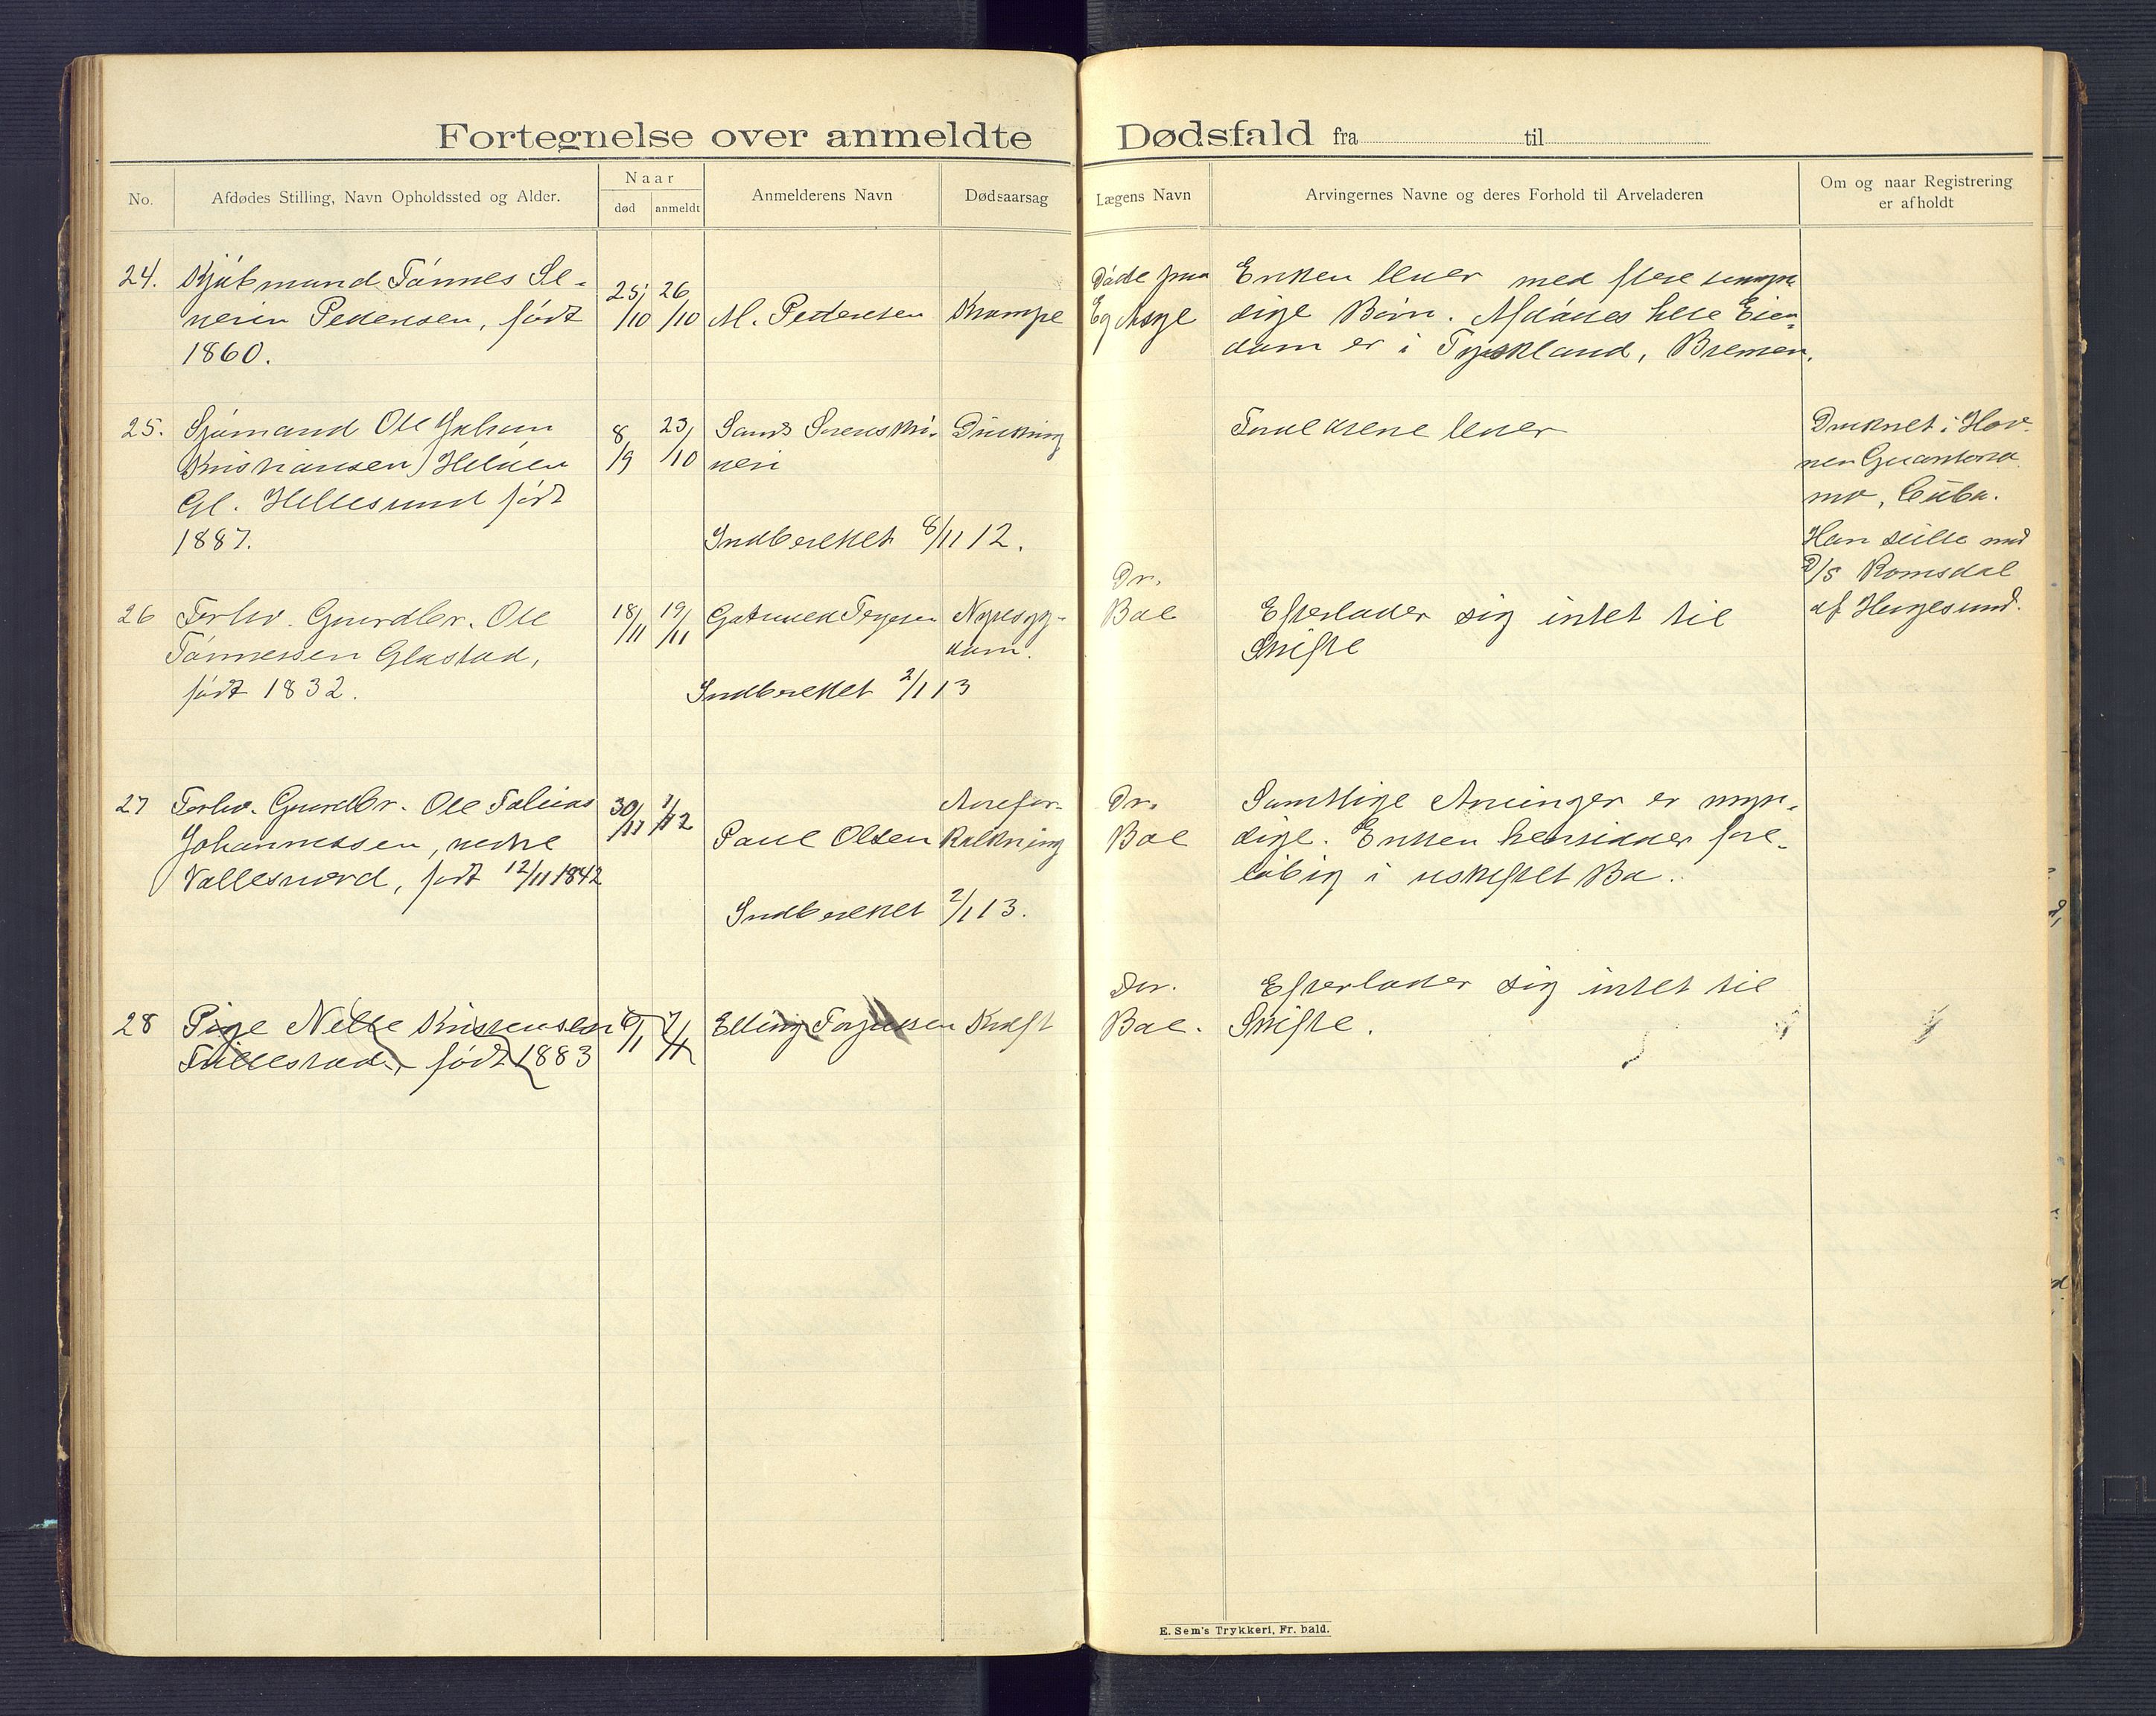 Fortegnelse over anmeldte Dødsfald fra til
No.
Afdødes Stilling, Navn Opholdssted og Alder.
Naar
død
anmeldt
Anmelderens Navn
Dødsaarsag
Lægens Navn
Arvingernes Navne og deres Forhold til Arveladeren
Om og naar Registrering
er afholdt
24.
Kjøbmand Tønnes Se-
verin Pedersen, født
1860.
25/10
26/10
M. Pedersen
Krampe
Døde paa
Eg Asyl
Enken lever med flere umyn
dige Børn. Afdødes hele Eien-
dom er i Tyskland, Bremen.
25.
Sjømand Ole
Kristiansen Helden
Gl. Hellesund født
1887.
8/9
23/10
Sands Sorenskri-
veri
Drukning
Indberettet 8/11 12.
Foreldrene lever
Druknet i Hav-
nen Guantana
mo, Cuba.
Han seilte med
D/S Romsdal
af Haugesund.
26
Forhv. Gaardbr. Ole
Tønnessen Glastad,
født 1832.
18/11
19/11
Gatmand Terjesen
Nyresyg-
dom.
Indberettet 2/1 13
Dr.
Boe
Efterlader sig intet til
Skifte
27
Forhv. Gaardbr. Ole Tobias
Johannessen, nedre
Vallesverd, født 12/11 1842
30/11
1/12
Paul Olsen
Aarefor-
kalkning
Indberettet 2/1 13.
Dr.
Boe
Samtlige Arvinger er myn-
dige. Enken hensidder fore-
løbig i uskiftet Bo.
28
Pige Nelle Kristensen
Tullestad, født 1883
6/1
7/1
Elling Torjussen
Kræft
Dr.
Boe.
Efterlader sig intet til
Skifte.
E. Sem's Trykkeri, Fr. hald.